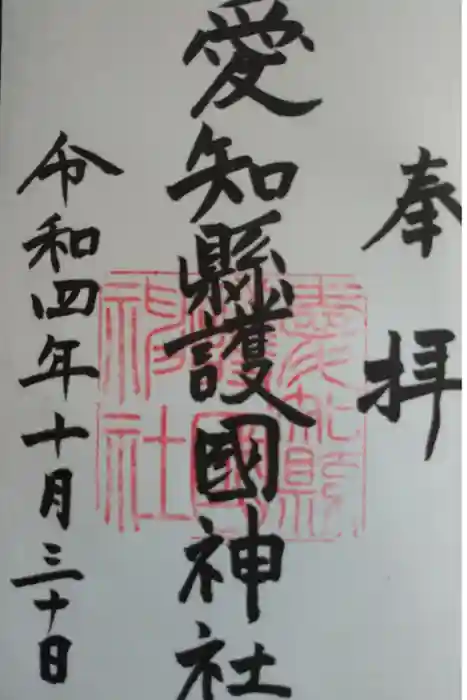 奉拝
愛知縣護國神社
愛知縣護國神社
令和四年十月三十日